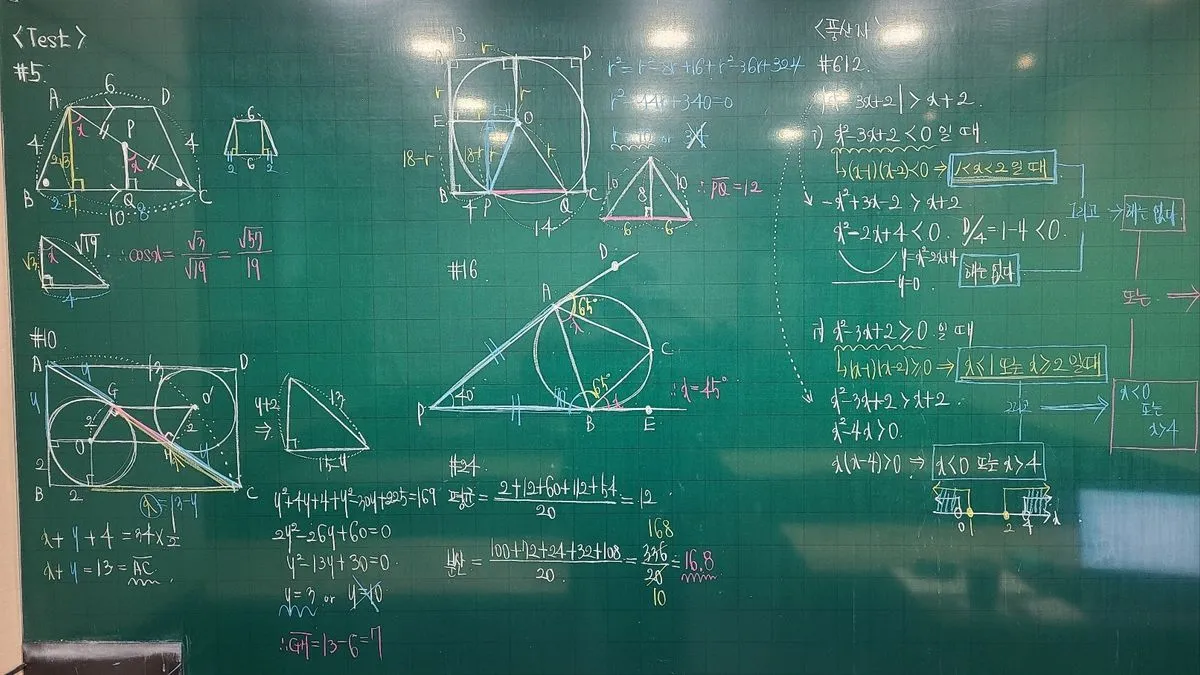 <Test>
#5.
6
A
D
4
x
P
4
2√3
x
B
2
H
Q
C
10
8
6
2
6
2
√3
x
√19
4
∴cosx = √3/√19 = √57/19
#10
A
y
13
D
y
G
O'
2
O
2
H
y
2
B
2
x
C
x = 13-y
x+y+4 = 34×1/2
x+y = 13 = AC
y+2
⇒
13
15-y
y²+4y+4+y²-30y+225=169
2y²-26y+60=0
y²-13y+30=0
y=3 or y=10
∴GH=13-6=7
13
r
D
r
r
E
r-4
O
18-r
18-r
r
r
B
4
P
Q
C
14
r²=r²-8r+16+r²-36r+324
r²-44r+340=0
r=10 or 34
10
10
8
6
6
∴PQ=12
#16
D
A
65°
x
C
P
40°
70°
65°
x
B
E
∴x=45°
#24.
평균 = 2+12+60+112+54/20 = 12
분산 = 100+72+24+32+108/20 = 336/20 = 16.8
168
10
<풍산자>
#612.
|x²-3x+2| > x+2
i) x²-3x+2<0 일 때
↳(x-1)(x-2)<0 ⇒ 1<x<2 일 때
-x²+3x-2 > x+2
x²-2x+4<0. D/4=1-4<0.
y=x²-2x+4
y=0
해는 없다
그리고
해는 없다.
또는
ii) x²-3x+2≥0 일 때
↳(x-1)(x-2)≥0 ⇒ x≤1 또는 x≥2 일 때
x²-3x+2>x+2
그리고
x²-4x>0.
x(x-4)>0 ⇒ x<0 또는 x>4
x<0
또는
x>4
0
1
2
4
x